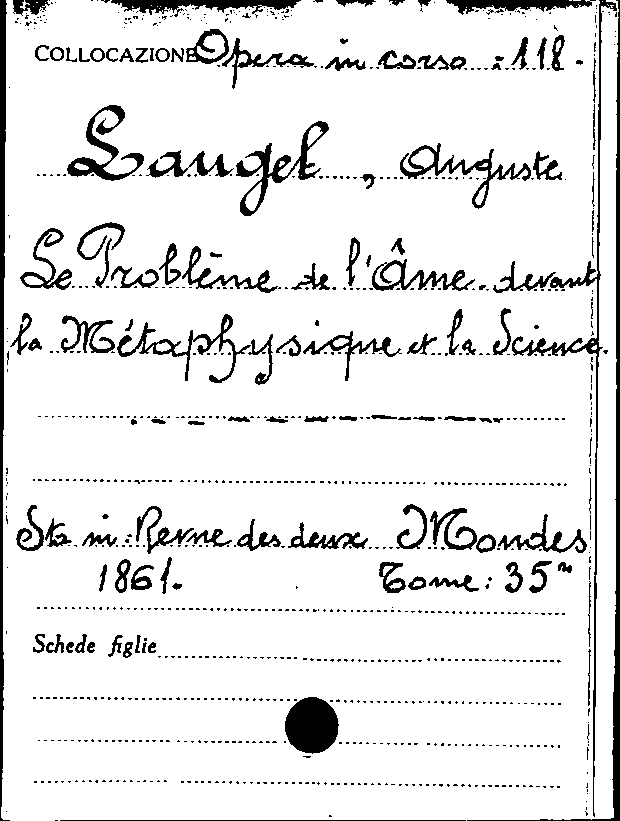 COLLOCAZIONE Opera in corso : 118.
Laugel, Auguste
Le Problême de l'Âme. devant
la Métaphysique et la Science.
Sta in: Revue des deux Mondes
1861. Tome: 35m
Schede figlie